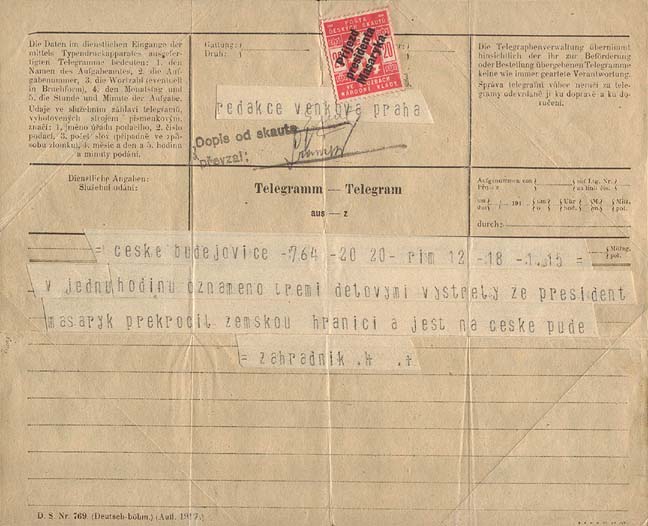 Die Daten im dienstlichen Eingange der
mittels Typendruckapparates ausgefer-
tigten Telegramme bedeuten: 1. den
Namen des Aufgabeamtes, 2. die Auf-
gabenummer, 3. die Wortzahl (eventuell
in Bruchform), 4. den Monatstag und
5. die Stunde und Minute der Aufgabe.
Údaje ve služebním záhlaví telegramů,
vyhotovených strojem písmenkovým,
značí: 1. jméno úřadu podacího, 2. číslo
podací, 3. počet slov (případně ve způ-
sobu zlomku), 4. měsíc a den a 5. hodinu
a minuty podání.
Gattung:
Druh:
POŠTA
ČESKÝCH SKAUTŮ
20
Příjezd
presidenta
Masaryka
VE SLUŽBÁCH
NÁRODNÍ VLÁDY
Die Telegraphenverwaltung übernimmt
hinsichtlich der ihr zur Beförderung
oder Bestellung übergebenen Telegramme
keine wie immer geartete Verantwortung.
Správa telegrafní vůbec neručí za tele-
gramy odevzdané jí ku dopravě a ku do-
ručení.
redakce venkova praha
Dopis od skauta
převzal:
Dienstliche Angaben:
Služební údání:
Telegramm — Telegram
aus — z
Aufgenommen von
Přijato
auf Ltg. Nr.
na lince čís.
am
dne
191
um
o
Uhr
hod.
M.
Mittg.
pol.
durch:
Mittag.
pol.
= ceske budejovice -764 -20 20- rim 12 -18 -1.15 =
v jednuhodinu oznameno tremi delovymi vystrely ze president
masaryk prekrocil zemskou hranici a jest na ceske pude
= zahradnik .+ .+
D. S. Nr. 769. (Deutsch-böhm.) (Aufl. 1917.)